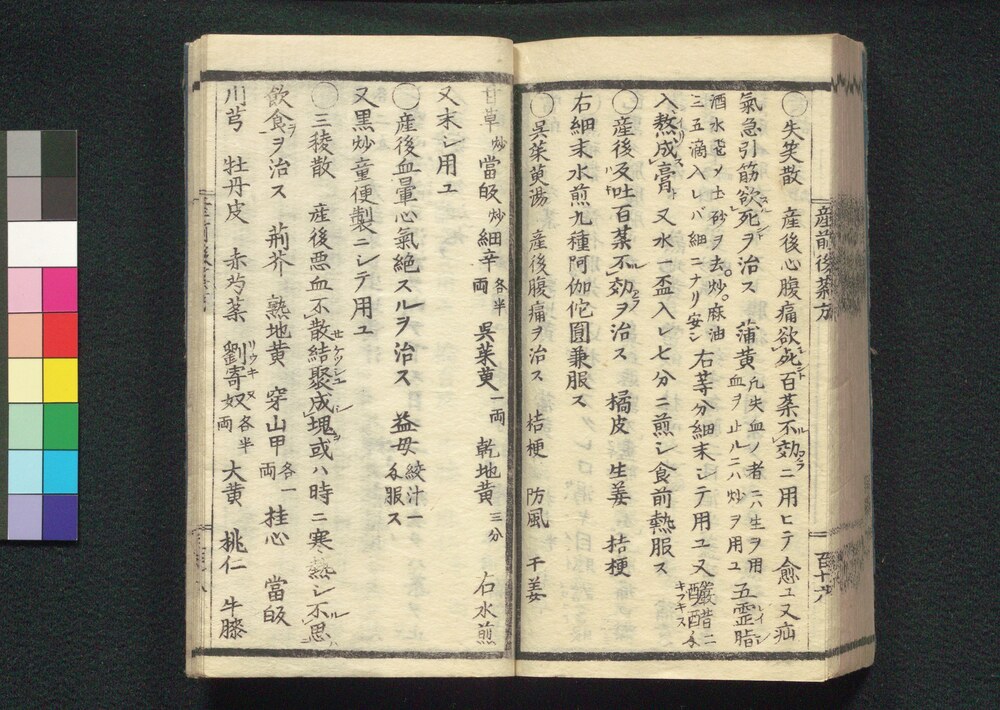 産前後薬方
百十六
○失笑散　産後心腹痛欲死百薬不効ニ用ヒテ愈ユ又疝
氣急引筋欲死ヲ治ス　蒲黄 凡失血ノ者ニハ生ヲ用 血ヲ止ルニハ炒ヲ用ユ 五霊脂
酒水 土砂ヲ去炒麻油 三五滴入レバ細ニナリ安シ 右等分細末シテ用ユ又 醋ニ
入熬成膏又水一盃入レ七分ニ煎シ食前熱服ス
○産後及吐百薬不効ヲ治ス　橘皮　生姜　桔梗
右細末水煎九種阿伽佗圓兼服ス
○呉茱萸湯　産後腹痛ヲ治ス　桔梗　防風　干姜
甘草炒　當皈炒　細辛各半両　呉茱萸一両　乾地黄三分　右水煎
又末シ用ユ
○産後血暈心氣絶スルヲ治ス　益母絞汁一 服ス
又黒炒童便製ニシテ用ユ
○三稜散　産後悪血不散結聚成塊或ハ時ニ寒熱シ不思
飲食ヲ治ス　荊芥　熟地黄　穿山甲各一両　桂心　當皈
川芎　牡丹皮　赤芍薬　劉寄奴各半両　大黄　桃仁　牛膝